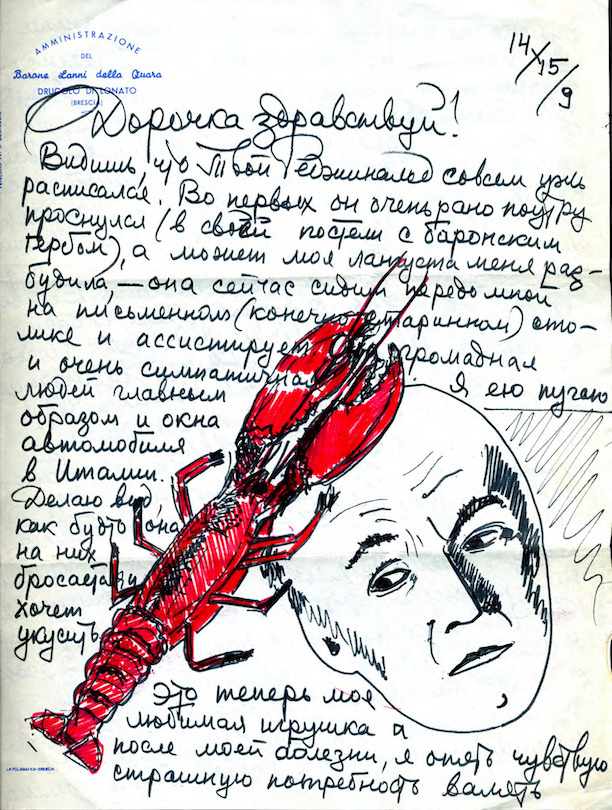 AMMINISTRAZIONE
DEL
Barone Lanni della Quara
DRUGOLO DI LONATO
(BRESCIA)
14/15/9
Дорочка здравствуй!
Видишь, что Твой совсем ужь
расписался. Во первых он очень рано поутру
проснулся (в своей постели с баронским
гербом), а может моя лангуста меня раз-
будила, — она сейчас сидит передо мной
на письменном (конечно старинном) сто-
лике и ассистирует. Она громадная
и очень симпатичная. Я ею пугаю
людей главным
образом из окна
автомобиля
в Италии.
Делаю вид,
как будто она
на них
бросается и
хочет
укусить.
Это теперь моя
любимая игрушка а
после моей болезни, я опять чувствую
страшную потребность валять